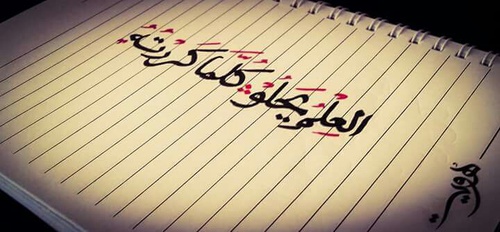 العِلْمُ يَحلُو كُلَّمَا كَرَّرْتَهُ
هويت